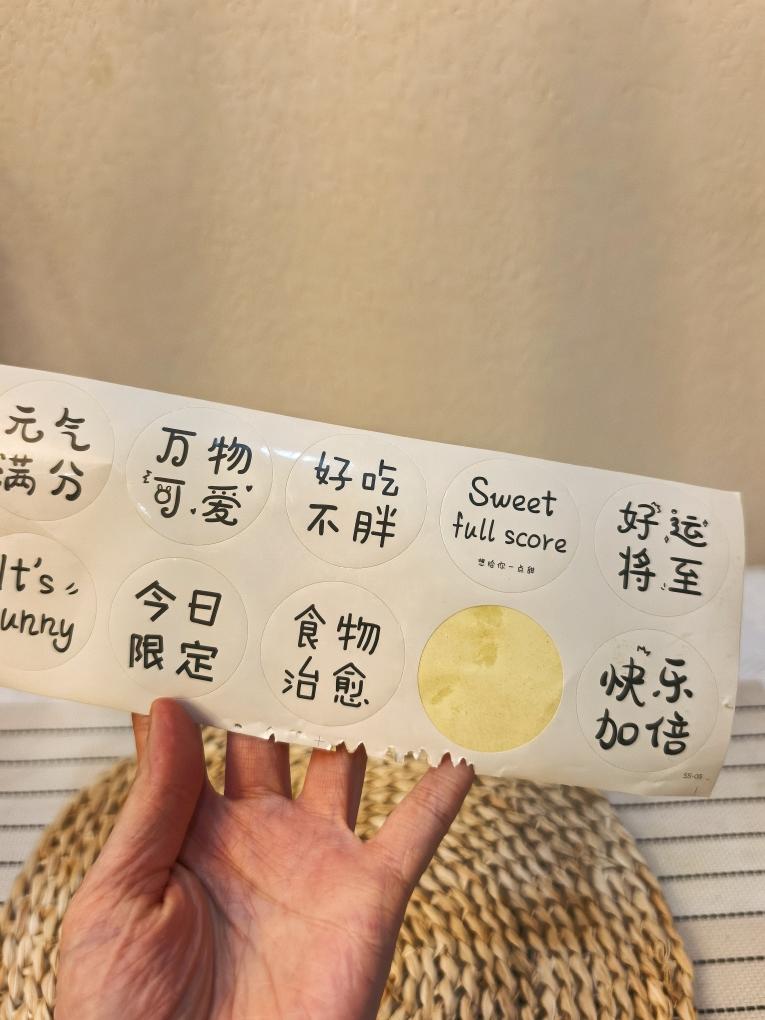 元气
满分
万物
可爱
好吃
不胖
Sweet
full score
想给你一点甜
好运
将至
It's
unny
今日
限定
食物
治愈
快乐
加倍
SS-05